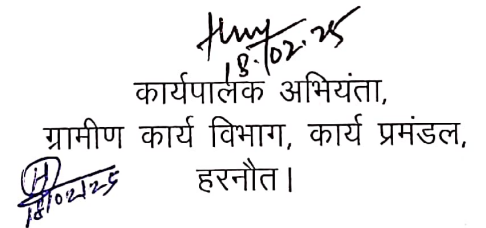 18.02.25
कार्यपालक अभियंता,
ग्रामीण कार्य विभाग, कार्य प्रमंडल,
हरनौत।
H
18/02/25